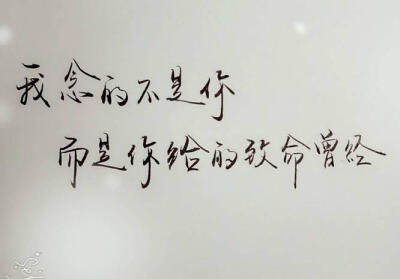 我念的不是你
而是你给的致命曾经